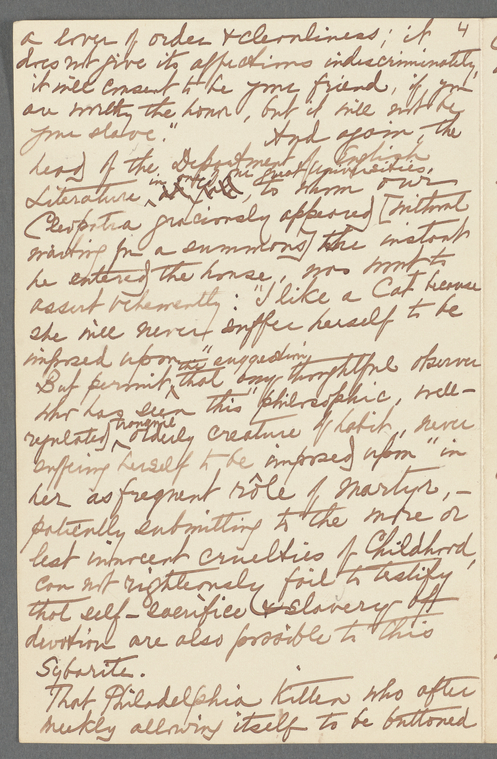 a lover of order & cleanliness; it 4
does not give its affections indiscriminately,
it will consent to be your friend, if you
are worthy the honor, but it will not be
your slave." And again the
head of the Department of English
Literature, in one of our great Universities, to whom our
Cleopatra graciously appeared [without
waiting for a summons] the instant
he entered the house, was wont to
assert vehemently: "I like a Cat because
she will never suffer herself to be
imposed upon."
But permit the suggestion that any thoughtful observer
who has seen this "philosophic, well-
regulated, orderly creature of habit, never
suffering herself to be imposed upon" in
her as frequent rôle of Martyr, –
patiently submitting to the more or
less innocent cruelties of Childhood,
can not righteously fail to testify
that self-sacrifice & slavery of
devotion are also possible to this
Sybarite.
That Philadelphia Kitten who after
meekly allowing itself to be buttoned